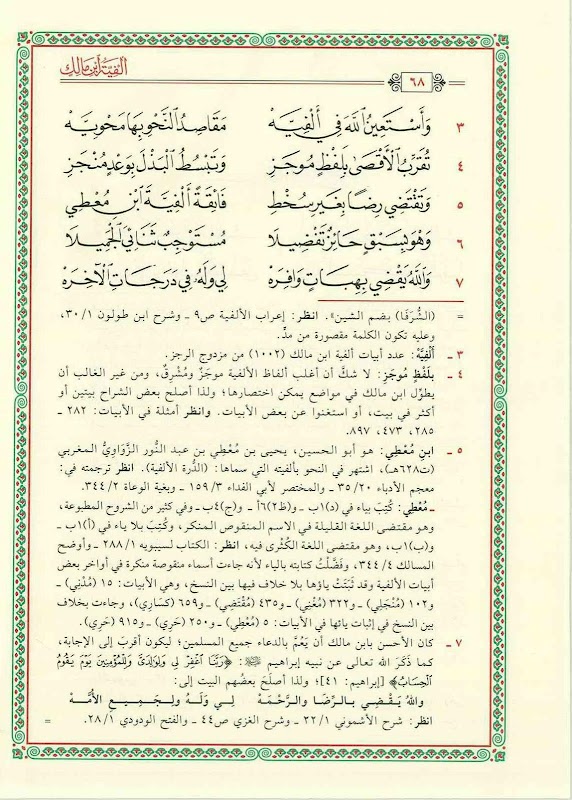 ألفية ابن مالك
٦٨
٣ وَأَسْتَعِينُ اللهَ فِي أَلْفِيَّهْ مَقَاصِدُ النَّحْوِ بِهَا مَحْوِيَّهْ
٤ تُقَرِّبُ الْأَقْصَى بِلَفْظٍ مُوجَزِ وَتَبْسُطُ الْبَذْلَ بِوَعْدٍ مُنْجَزِ
٥ وَتَقْتَضِي رِضًا بِغَيْرِ سُخْطِ فَائِقَةً أَلْفِيَّةَ ابْنِ مُعْطِي
٦ وَهُوَ بِسَبْقٍ حَائِزٌ تَفْضِيلَا مُسْتَوْجِبٌ ثَنَائِيَ الْجَمِيلَا
٧ وَاللهُ يَقْضِي بِهِبَاتٍ وَافِرَهْ لِي وَلَهُ فِي دَرَجَاتِ الْآخِرَهْ
= (الشُّرَفَا) بضم الشين». انظر: إعراب الألفية ص٩ ـ وشرح ابن طولون ٣٠/١،
وعليه تكون الكلمة مقصورة من مدٍّ.
٣ ـ أَلْفِيَّهْ: عدد أبيات ألفية ابن مالك (١٠٠٢) من مزدوج الرجز.
٤ ـ بِلَفْظٍ مُوجَزِ: لا شكَّ أن أغلب ألفاظ الألفية موجَزٌ ومُشْرِقٌ، ومن غير الغالب أن
يطوِّل ابن مالك في مواضع يمكن اختصارها؛ ولذا أصلح بعض الشراح بيتين أو
أكثر في بيت، أو استغنوا عن بعض الأبيات. وانظر أمثلة في الأبيات: ٢٨٢ ـ
٢٨٥، ٤٧٣، ٨٩٧.
٥ ـ ابنِ مُعْطِي: هو أبو الحسين، يحيى بن مُعْطِي بن عبد النُّور الزَّوَاوِيُّ المغربي
(ت٦٢٨هـ)، اشتهر في النحو بألفيته التي سماها: (الدُّرة الألفية). انظر ترجمته في:
معجم الأدباء ٣٥/٢٠ ـ والمختصر لأبي الفداء ١٥٩/٣ ـ وبغية الوعاة ٣٤٤/٢.
ـ مُعْطِي: كُتِبَ بياء في (د)١ب ـ و(ظ٢)٦أ ـ و(ج)٤ب ـ وفي كثير من الشروح المطبوعة،
وهو مقتضى اللغة القليلة في الاسم المنقوص المنكر، وكُتِبَ بلا ياء في (أ)١ب ـ
و(ب)١ب، وهو مقتضى اللغة الكُثْرى فيه، انظر: الكتاب لسيبويه ٢٨٨/١ ـ وأوضح
المسالك ٣٤٤/٤، وفَضَّلْتُ كتابته بالياء لأنه جاءت أسماء منقوصة منكرة في أواخر بعض
أبيات الألفية وقد ثَبَتَتْ ياؤها بلا خلاف فيها بين النسخ، وهي الأبيات: ١٥ (مُدْنِي) ـ
و١٠٢ (مُنْجَلِي) ـ و٣٢٢ (مُغْنِي) ـ و٤٣٥ (مُقْتَضِي) ـ و٦٥٩ (كسَارِي)، وجاءت بخلاف
بين النسخ في إثبات يائها في الأبيات: ٥ (مُعْطِي) ـ و٢٥٠ (حَرِي) ـ و٩١٥ (حَرِي).
٧ ـ كان الأحسن بابن مالك أن يَعُمَّ بالدعاء جميع المسلمين؛ ليكون أقربَ إلى الإجابة،
كما ذكَرَ الله تعالى عن نبيه إبراهيم ﷺ: ﴿رَبَّنَا اغْفِرْ لِي وَلِوَالِدَيَّ وَلِلْمُؤْمِنِينَ يَوْمَ يَقُومُ
الْحِسَابُ﴾ [إبراهيم: ٤١]؛ ولذا أصلَحَ بعضُهم البيت إلى:
واللهُ يَقْضِي بالرِّضَا والرَّحْمَهْ لِي وَلَهُ ولِجَمِيعِ الأُمَّهْ
انظر: شرح الأشموني ٢٢/١ ـ وشرح الغزي ص٤٤ ـ والفتح الودودي ٢٨/١. =